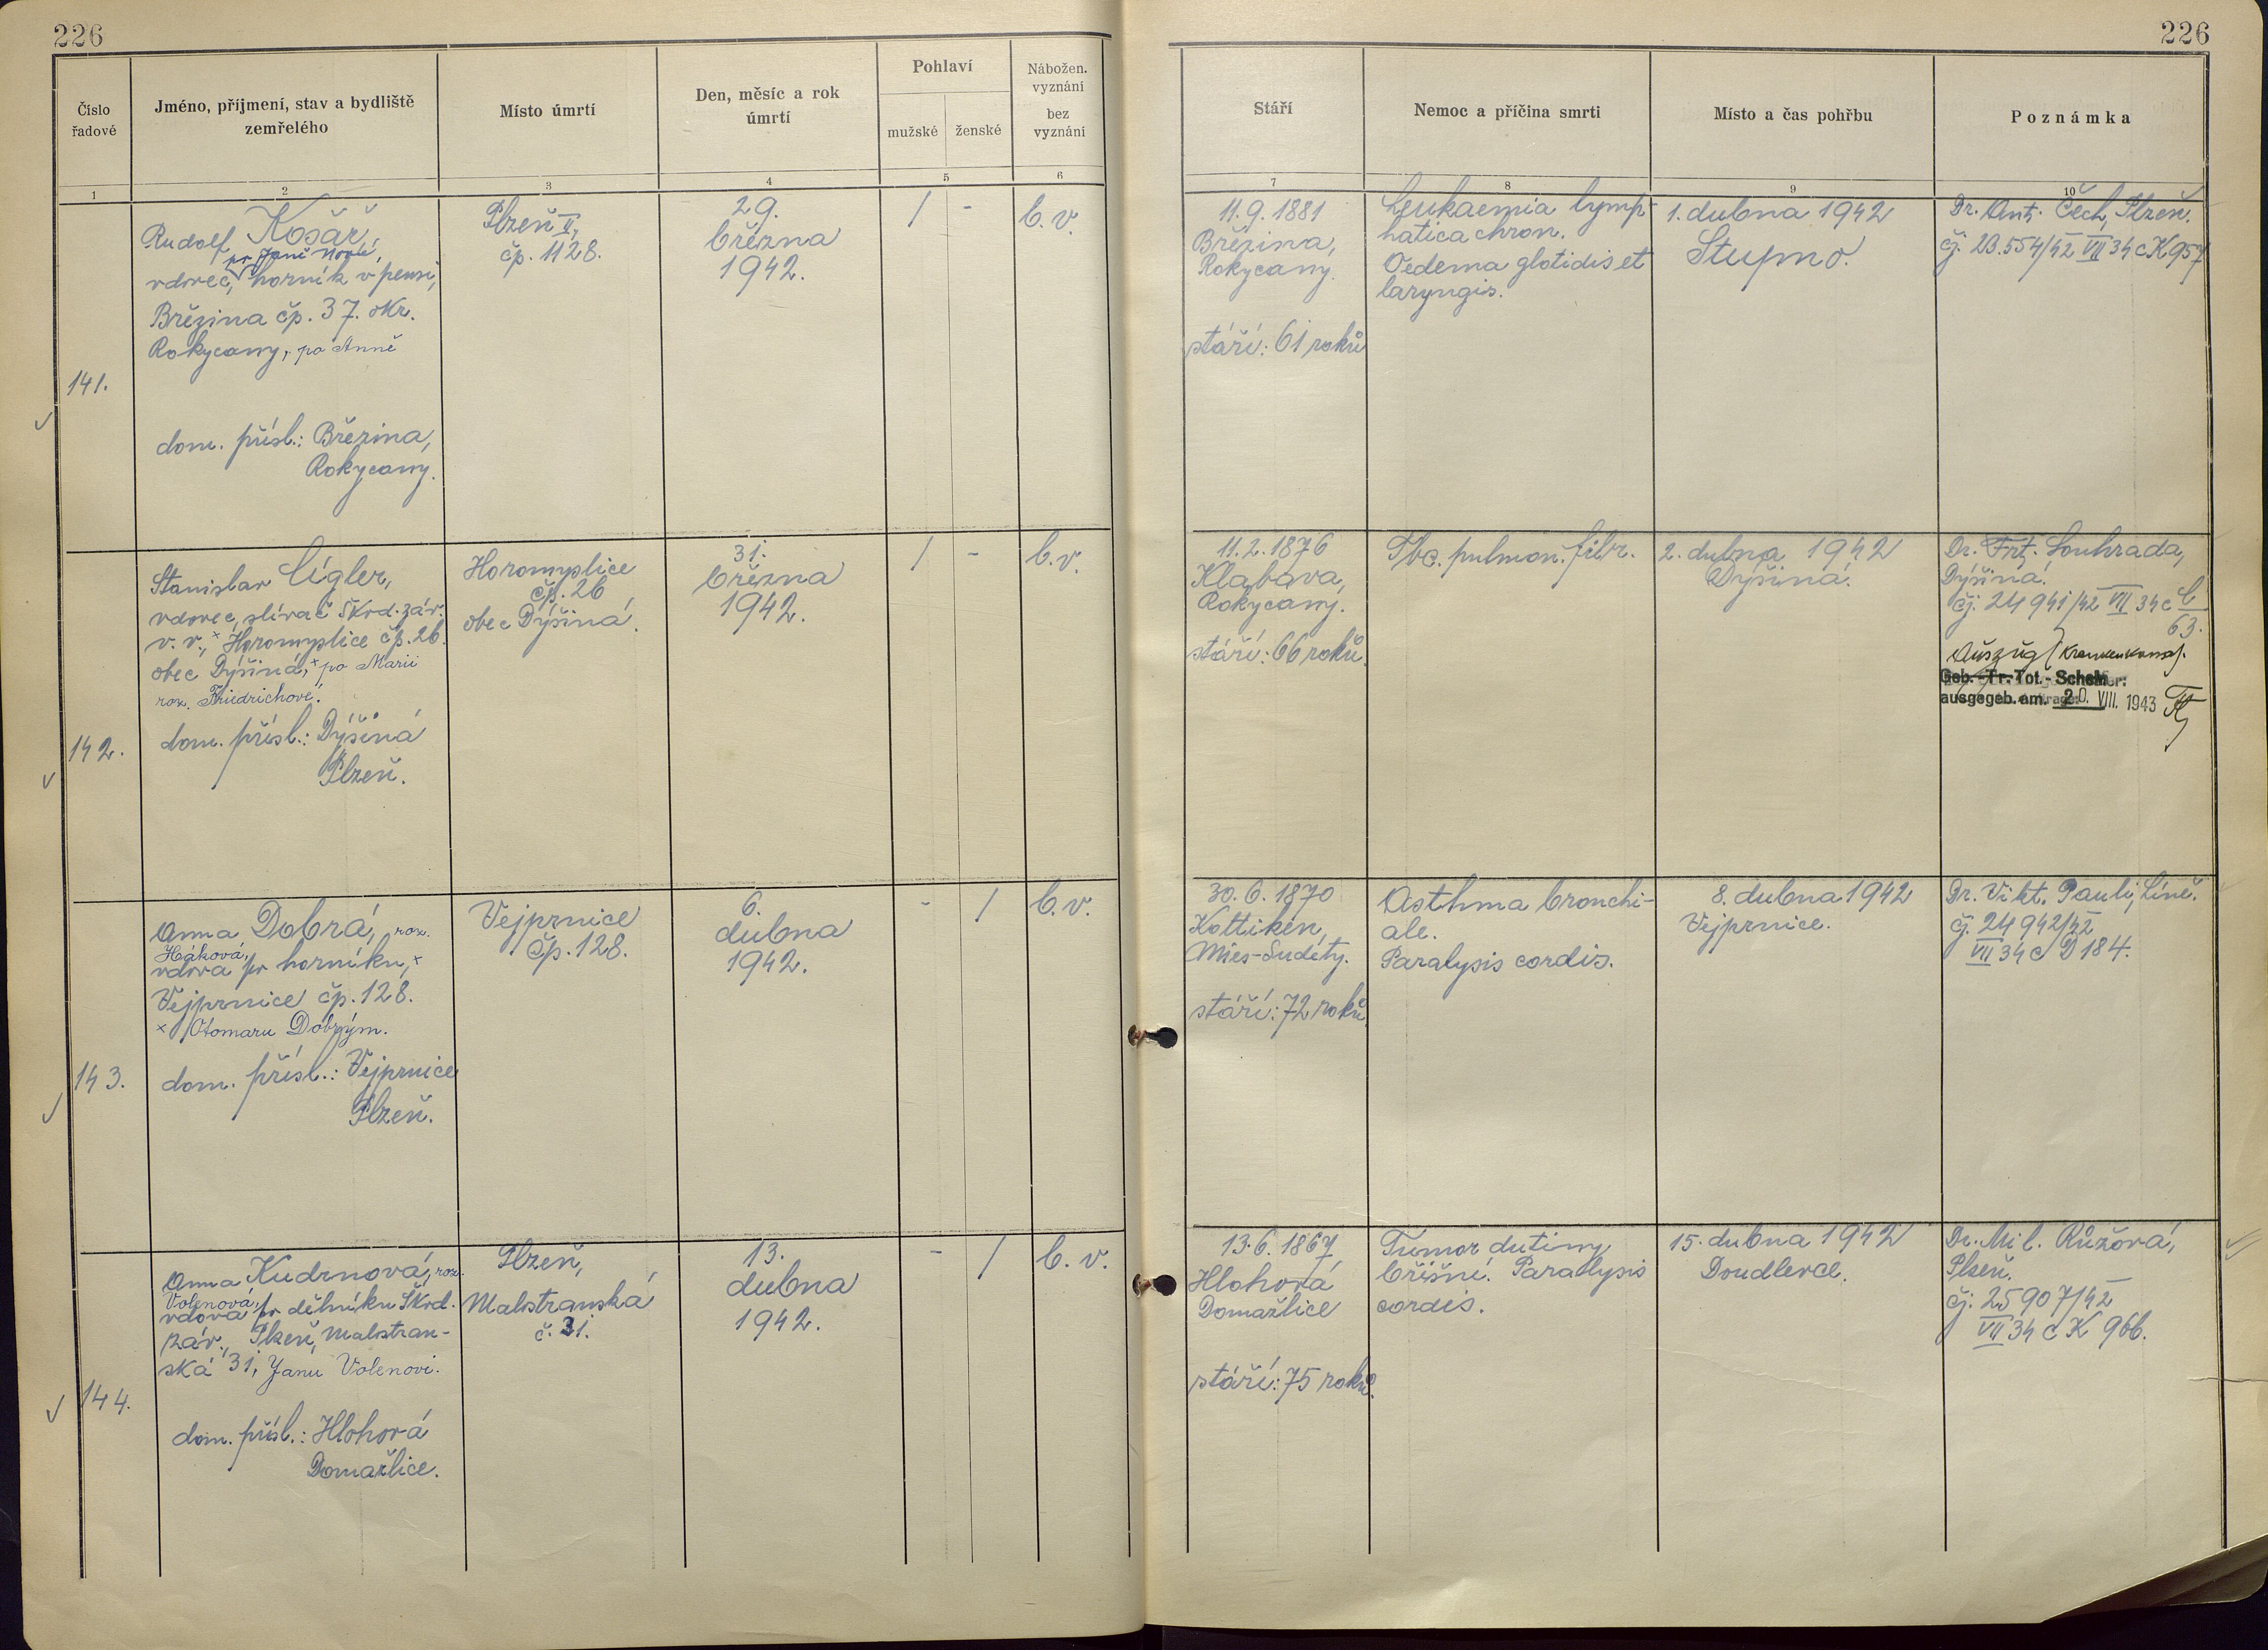 226
226
Číslo řadové
Jméno, příjmení, stav a bydliště zemřelého
Místo úmrtí
Den, měsíc a rok úmrtí
Pohlaví
mužské
ženské
Nábožen. vyznání
bez vyznání
Stáří
Nemoc a příčina smrti
Místo a čas pohřbu
Poznámka
1
2
3
4
5
6
7
8
9
10
141.
Rudolf Košař,
po Janě
vdovec, horník v pensi,
Březina čp. 37. okr.
Rokycany, po Anně
dom. přísl.: Březina,
Rokycany.
Plzeň II,
čp. 1128.
29.
března
1942.
/
-
b. v.
11. 9. 1881
Březina,
Rokycany.
stáří: 61 roků
Leukaemia lymp-
hatica chron.
Oedema glotidis et
laryngis.
1. dubna 1942
Stupno.
Dr. Ant. Čech, Plzeň.
čj. 23.554/42 VII 34 c K 957
142.
Stanislav Cígler,
vdovec, slévač Škod. záv.
v. v., × Horomyslice čp. 26
obec Dýšiná, × po Marii
roz. Friedrichové.
dom. přísl.: Dýšiná
Plzeň.
Horomyslice
čp. 26
obec Dýšiná.
31.
března
1942.
/
-
b. v.
11. 2. 1876
Klabava,
Rokycany.
stáří: 66 roků.
Tbc. pulmon. fibr.
2. dubna 1942
Dýšiná.
Dr. Frt. Souhrada,
Dýšiná.
čj. 24 941/42 VII 34 c C
63.
Auszug (Krankenkassa).
Geb.-Tr.-Tot.-Schein
ausgegeb. am. 20. VIII. 1943
143.
Anna Dobrá, roz.
Háková,
vdova po horníku, ×
Vejprnice čp. 128.
× Otomaru Dobrým.
dom. přísl.: Vejprnice
Plzeň.
Vejprnice
čp. 128.
6.
dubna
1942.
-
/
b. v.
30. 6. 1870
Kottiken,
Mies-Sudety.
stáří: 72 roků.
Asthma bronchi-
ale.
Paralysis cordis.
8. dubna 1942
Vejprnice.
Dr. Vikt. Pauli, Líně.
čj. 24 942/42
VII 34 c D 184.
144.
Anna Kudrnová, roz.
Volenová,
vdova po dělníku Škod.
záv., Plzeň, Malostran-
ská 31, Janu Volenovi.
dom. přísl.: Hlohová
Domažlice.
Plzeň,
Malostranská
č. 31.
13.
dubna
1942.
-
/
b. v.
13. 6. 1867
Hlohová
Domažlice
stáří: 75 roků.
Tumor dutiny
břišní. Paralysis
cordis.
15. dubna 1942
Doudlevce.
Dr. Mil. Růžová,
Plzeň.
čj. 25 907/42
VII 34 c K 966.